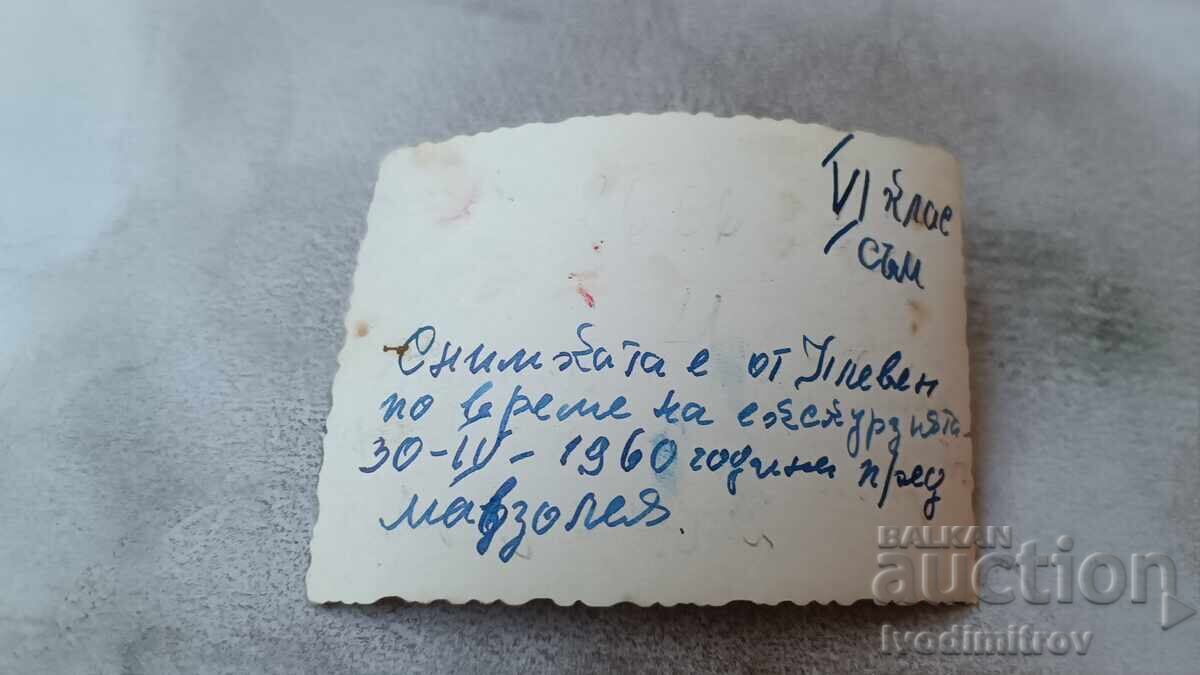 VI клас
съм
Снимката е от Плевен
по време на екскурзията
30-IV-1960 година пред
мавзолея
BALKAN
auction
Ivodimitrov